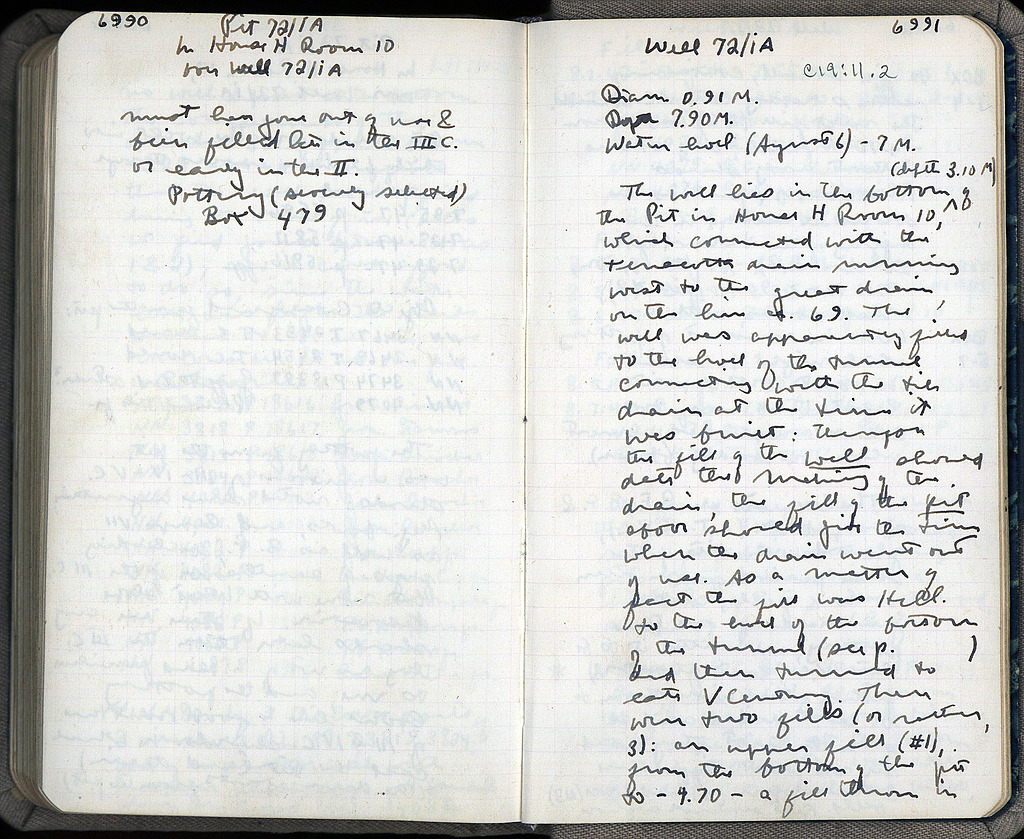 6990
Pit 72/1A
In House H Room 10
over Well 72/1A
must have gone out of use &
been filled late in the III C.
or early in the II.
Pottery (severely selected)
Box 479
6991
Well 72/1A
C19:11.2
Diam 0.91 M.
Depth 7.90 M.
Water level (August 6) - 7 M.
(depth 3.10 M)
The well lies in the bottom of
the Pit in House H Room 10,
which connected with the
terracotta drain running
west to the great drain,
on the line at 69. The
well was apparently filled
to the level of the tunnel
connecting with the tile
drain at the time it
was built: therefore
the fill of the well should
date the making of the
drain, the fill of the pit
above should give the time
when the drain went out
of use. As a matter of
fact the fill was Hell.
to the level of the bottom
of the tunnel (see p. )
and then turned to
late V Century. There
were two fills (or rather,
3): an upper fill (#1),
from the bottom of the pit
to - 4.70 - a fill thrown in